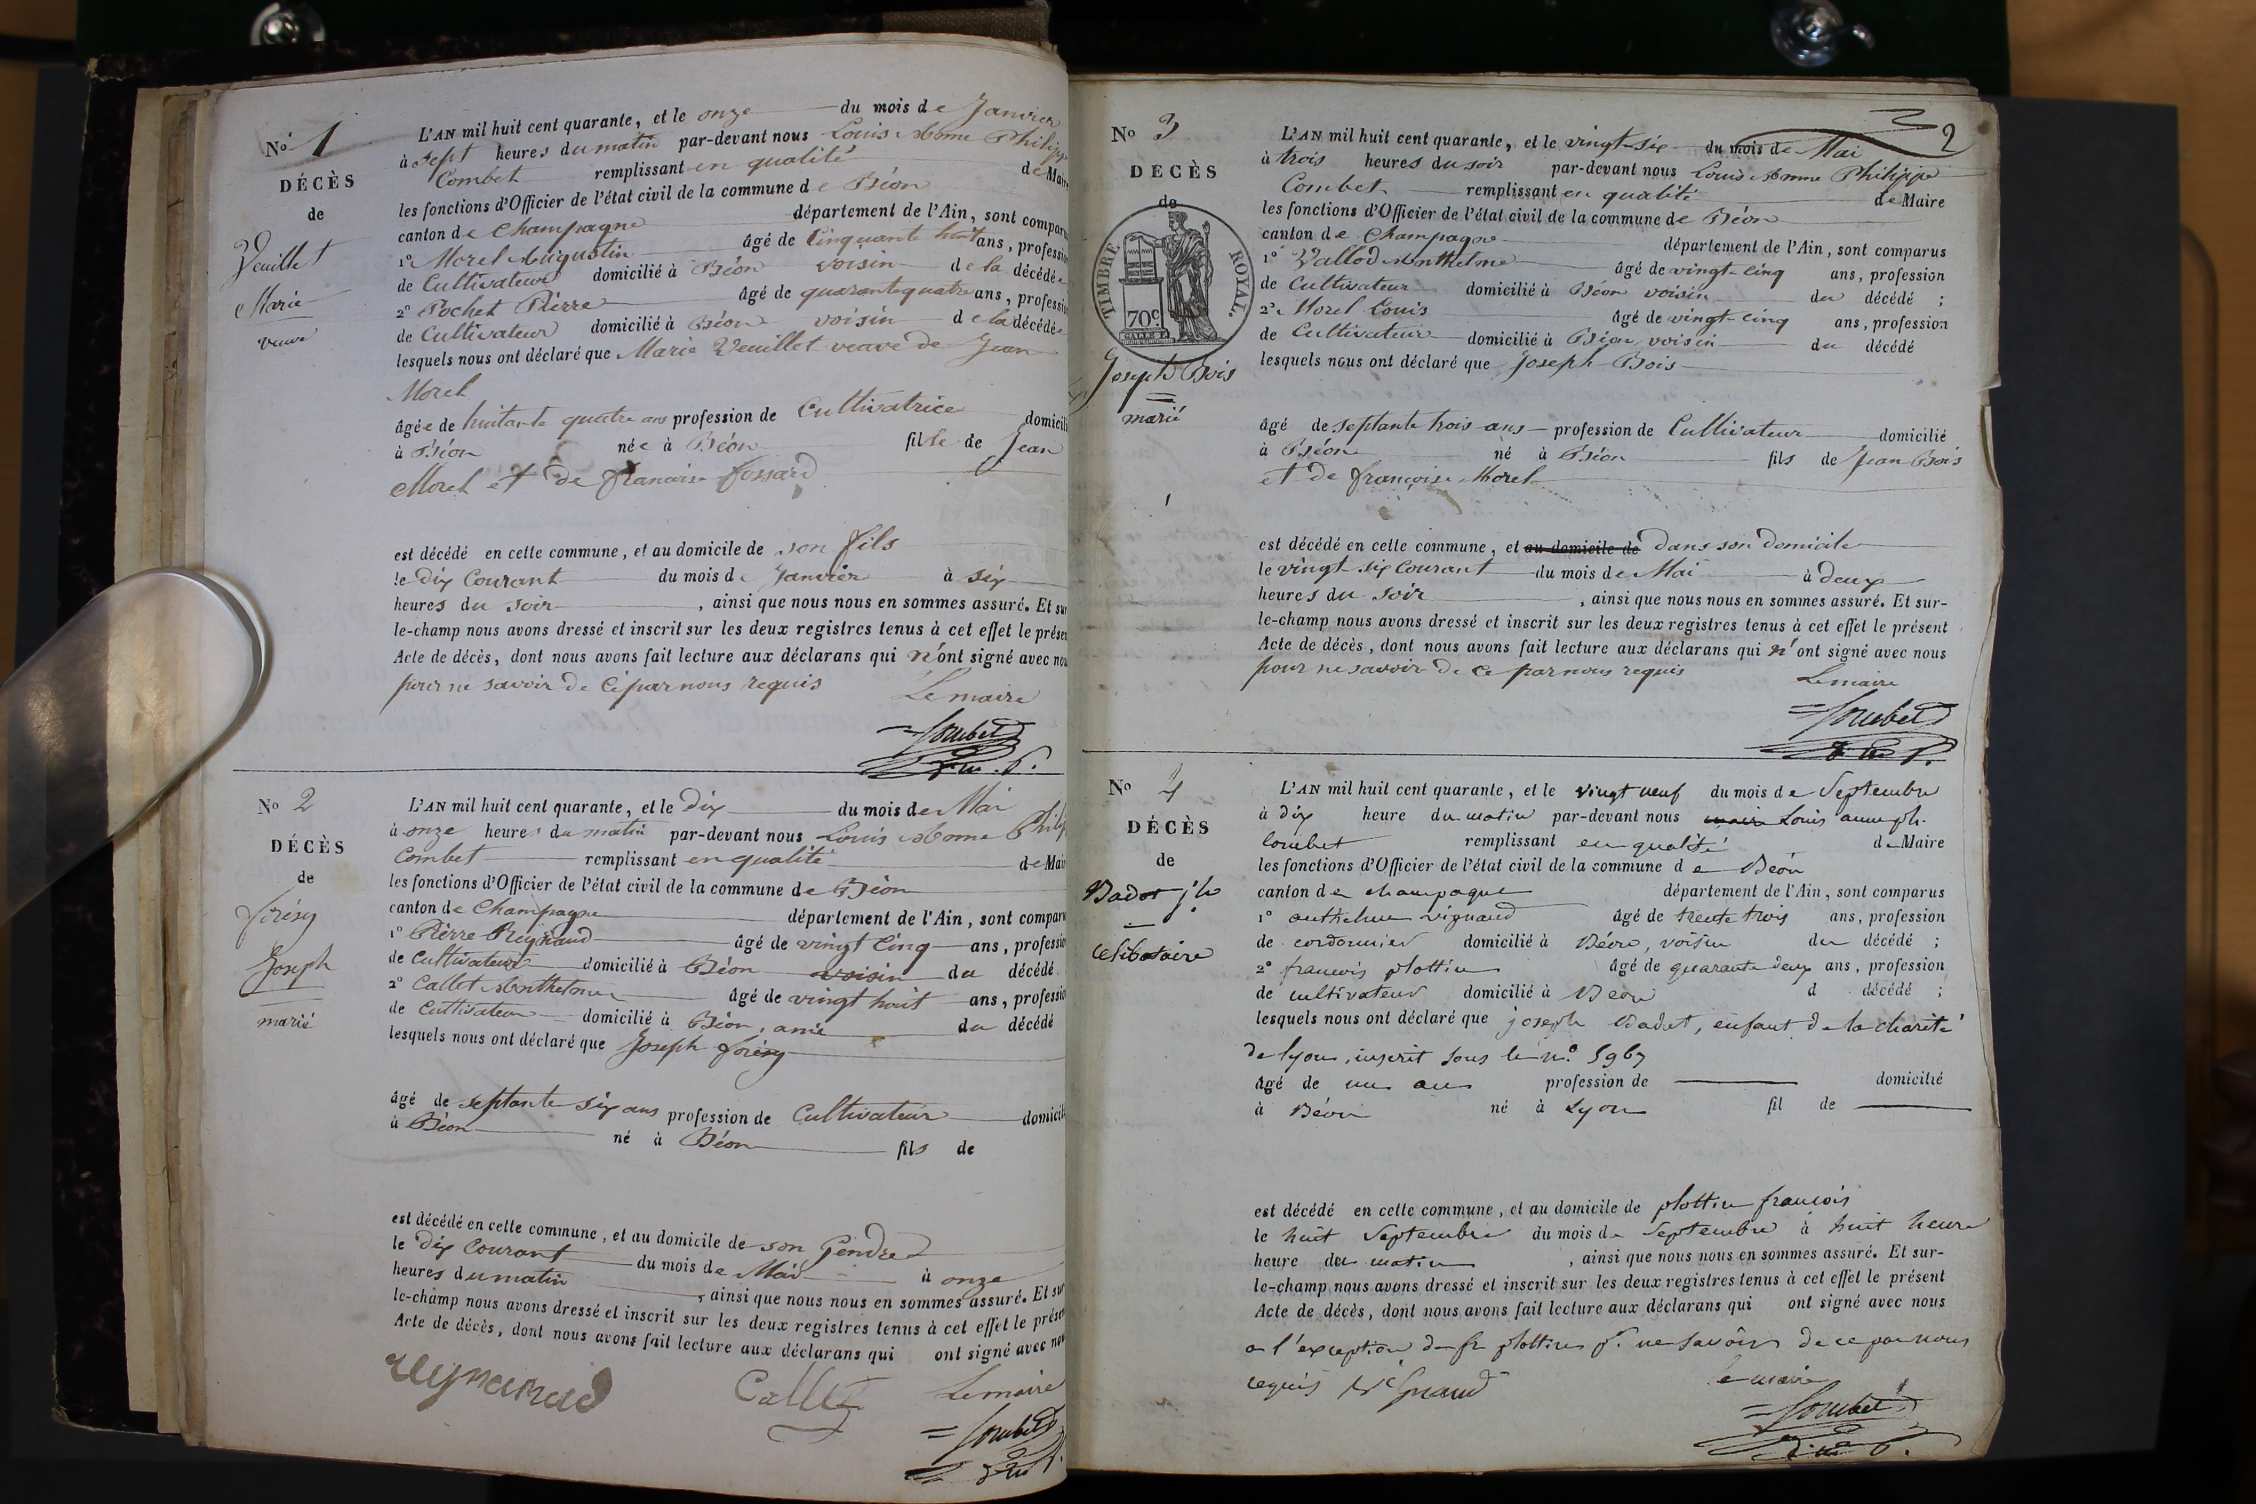 No 1
DÉCÈS
de
Veuillet
Marie
veuve
L'AN mil huit cent quarante, et le onze du mois de Janvier
à sept heures du matin par-devant nous Louis Anme Philippe
Combet remplissant en qualité de Maire
les fonctions d'Officier de l'état civil de la commune de Béon
canton de Champagne département de l'Ain, sont comparu
1° Morel Augustin âgé de Cinquante huit ans, profession
de Cultivateur domicilié à Béon voisin de la décédée
2° Pochet Pierre âgé de quarante quatre ans, profession
de Cultivateur domicilié à Béon voisin de la décédée
lesquels nous ont déclaré que Marie Veuillet veuve de Jean
Morel
âgée de huitante quatre ans profession de Cultivatrice domicili
à Béon née à Béon fille de Jean
Morel et de françoise fossard
est décédé en cette commune, et au domicile de son fils
le dix Courant du mois de Janvier à six
heures du soir, ainsi que nous nous en sommes assuré. Et sur
le-champ nous avons dressé et inscrit sur les deux registres tenus à cet effet le présen
Acte de décès, dont nous avons fait lecture aux déclarans qui n'ont signé avec nou
pour ne savoir de ce par nous requis
Le maire
Combet
No 2
DÉCÈS
de
Forésy
Joseph
marié
L'AN mil huit cent quarante, et le Dix du mois de Mai
à onze heures du matin par-devant nous Louis Anme Philip
Combet remplissant en qualité de Mair
les fonctions d'Officier de l'état civil de la commune de Béon
canton de Champagne département de l'Ain, sont comparu
1° Pierre Reynaud âgé de vingt Cinq ans, professio
de Cultivateur domicilié à Béon voisin du décédé
2° Callet Anthelme âgé de vingt huit ans, professio
de Cultivateur domicilié à Béon, amie du décédé
lesquels nous ont déclaré que Joseph forésy
âgé de septante six ans profession de Cultivateur domicili
à Béon né à Béon fils de
est décédé en cette commune, et au domicile de son Gendre
le dix Courant du mois de Mai à onze
heures du matin, ainsi que nous nous en sommes assuré. Et sur
le-champ nous avons dressé et inscrit sur les deux registres tenus à cet effet le présen
Acte de décès, dont nous avons fait lecture aux déclarans qui ont signé avec nou
Reynaud Callet Le maire
Combet
2
No 3
DÉCÈS
de
TIMBRE ROYAL.
70c.
Joseph Bois
marié
L'AN mil huit cent quarante, et le vingt-six du mois de Mai
à trois heures du soir par-devant nous Louis Anme Philippe
Combet remplissant en qualité de Maire
les fonctions d'Officier de l'état civil de la commune de Béon
canton de Champagne département de l'Ain, sont comparus
1° Vallod Anthelme âgé de vingt-cinq ans, profession
de Cultivateur domicilié à Béon voisin du décédé ;
2° Morel Louis âgé de vingt-cinq ans, profession
de Cultivateur domicilié à Béon, voisin du décédé
lesquels nous ont déclaré que Joseph Bois
âgé de septante trois ans profession de Cultivateur domicilié
à Béon né à Béon fils de Jean Bois
et de françoise Morel
est décédé en cette commune, et au domicile de Dans son Domicile
le vingt six Courant du mois de Mai à deux
heures du soir, ainsi que nous nous en sommes assuré. Et sur-
le-champ nous avons dressé et inscrit sur les deux registres tenus à cet effet le présent
Acte de décès, dont nous avons fait lecture aux déclarans qui n'ont signé avec nous
pour ne savoir de ce par nous requis
Le maire
Combet
No 4
DÉCÈS
de
Badot jh
Célibataire
L'AN mil huit cent quarante, et le vingt neuf du mois de Septembre
à dix heure du matin par-devant nous maire Louis anme ph.
Combet remplissant en qualité de Maire
les fonctions d'Officier de l'état civil de la commune de Béon
canton de champagne département de l'Ain, sont comparus
1° anthelme vignaud âgé de trente trois ans, profession
de cordonnier domicilié à Béon, voisin du décédé ;
2° francois plottin âgé de quarante deux ans, profession
de cultivateur domicilié à Béon d décédé ;
lesquels nous ont déclaré que joseph Badot, enfant de la charité
de lyon, inscrit sous le n° 5967
âgé de un an profession de domicilié
à Béon né à Lyon fil de
est décédé en cette commune, et au domicile de plottin francois
le huit Septembre du mois de Septembre à huit heure
heure du matin, ainsi que nous nous en sommes assuré. Et sur-
le-champ nous avons dressé et inscrit sur les deux registres tenus à cet effet le présent
Acte de décès, dont nous avons fait lecture aux déclarans qui ont signé avec nous
a l'exception de fr plottin pr. ne savoir de ce par nous
requis Vignaud le maire
Combet